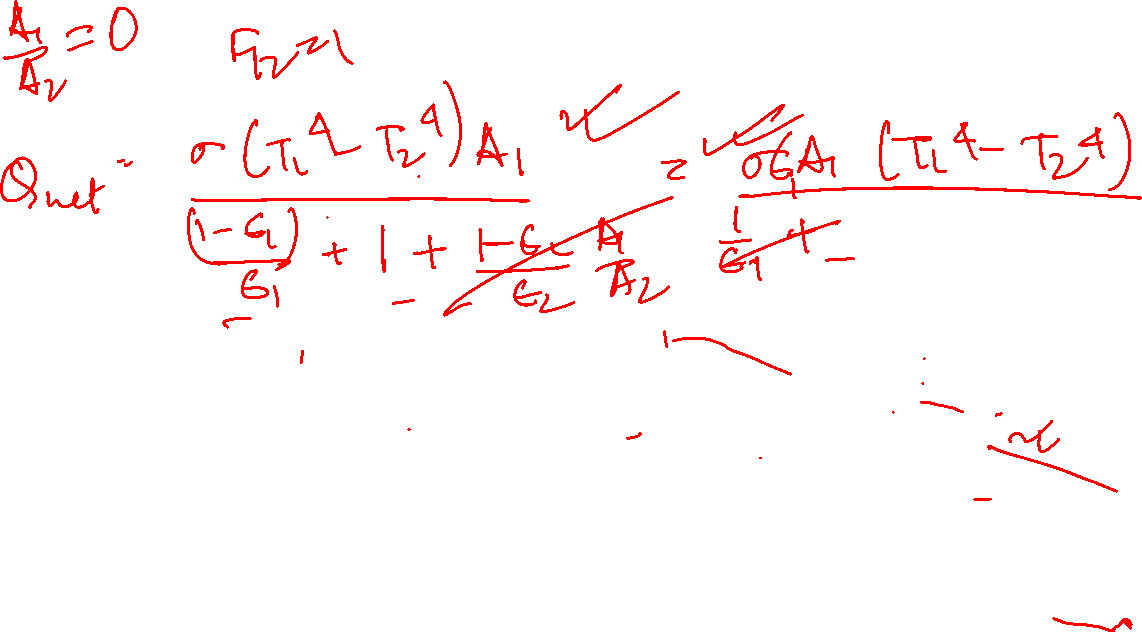 A₁/A₂ = 0   F₁₂ = 1
Qnet = σ(T₁⁴ - T₂⁴)A₁ / ((1-ϵ₁)/ϵ₁ + 1 + (1-ϵ₂)/ϵ₂ A₁/A₂) = σϵ₁A₁(T₁⁴ - T₂⁴) / (1/ϵ₁ +